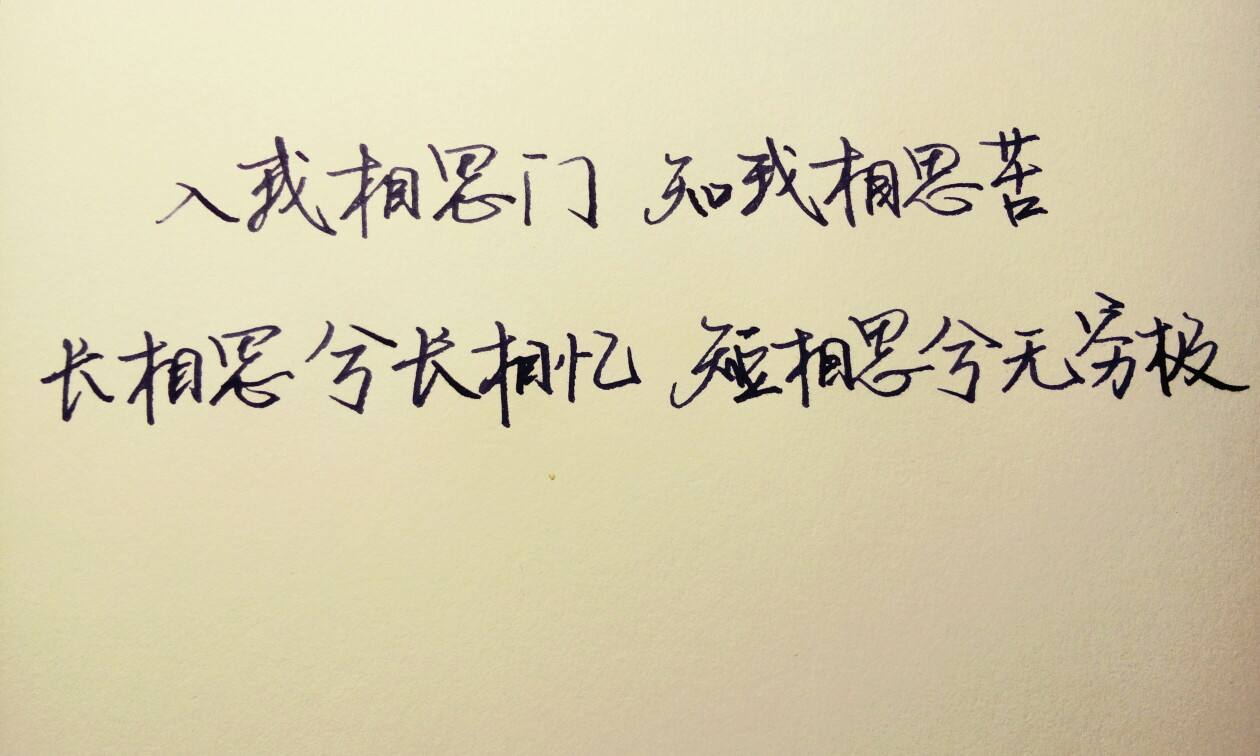 入我相思门 知我相思苦
长相思兮长相忆 短相思兮无穷极